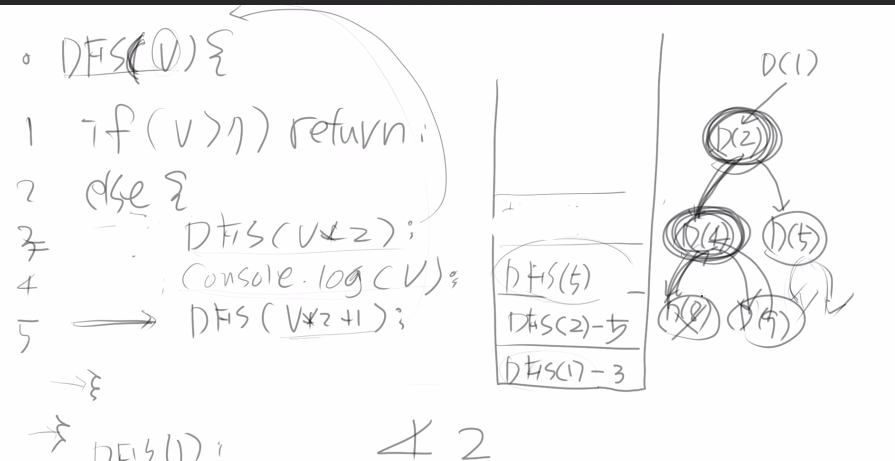 0 DFS(V){
1 if(V>7) return;
2 else {
3 DFS(V*2);
4 Console.log(V);
5 DFS(V*2+1);
}
}
DFS(1);
4 2
DFS(5)
DFS(2)-5
DFS(1)-3
D(1)
D(2)
D(4) D(5)
D(8) D(9)